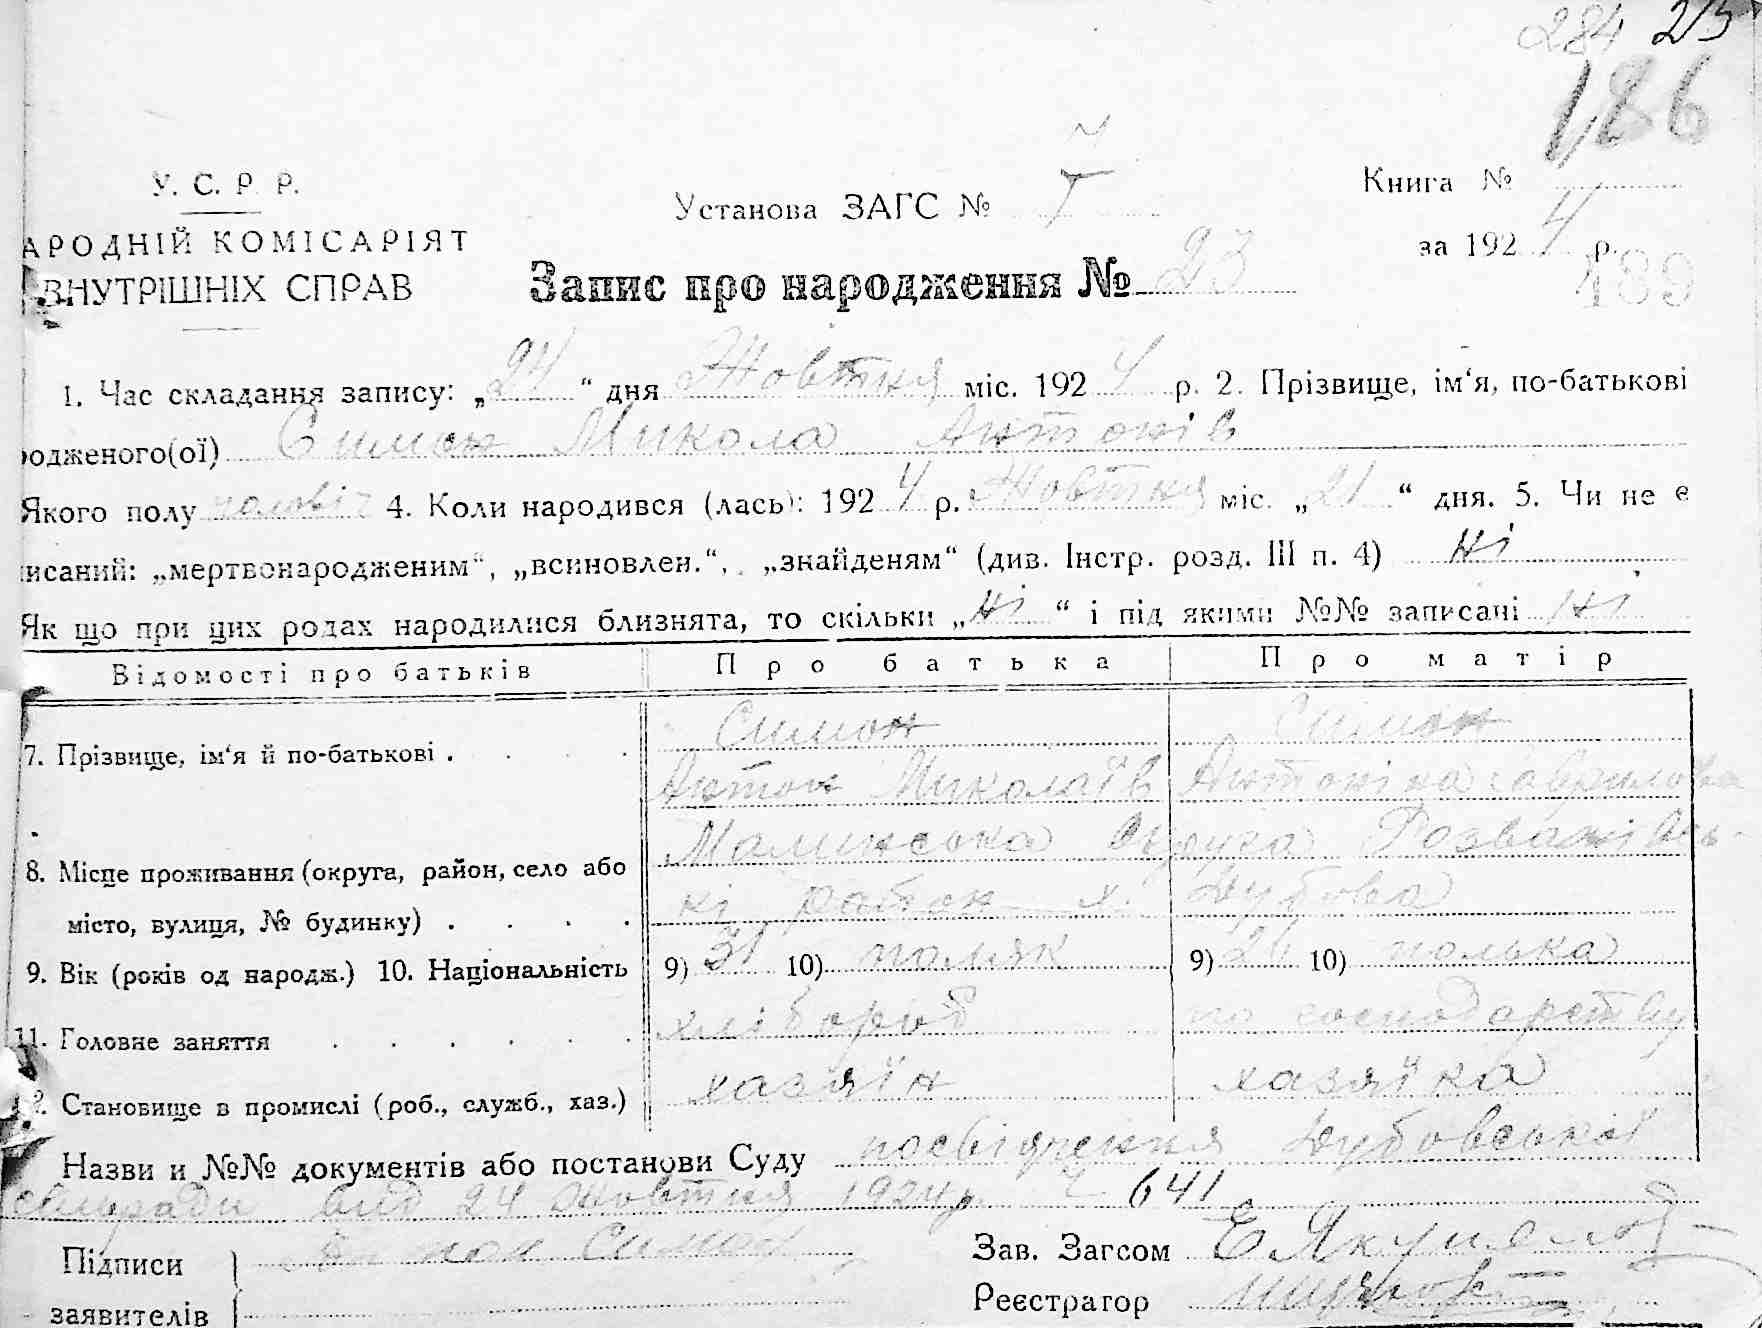 284 215
186
У. С. Р. Р.
АРОДНІЙ КОМІСАРІЯТ
ВНУТРІШНІХ СПРАВ
Установа ЗАГС №
Книга №
за 1924 р.
489
Запис про народження № 23
1. Час складання запису: „24“ дня Жовтня міс. 1924 р. 2. Прізвище, ім‘я, по-батькові
одженого(ої) Симон Микола Антонів
Якого полу чоловіч 4. Коли народився (лась): 1924 р. Жовтня міс. „21“ дня. 5. Чи не є
исаний: „мертвонародженим“, „всиновлен.“, „знайденям“ (див. Інстр. розд. III п. 4) ні
Як що при цих родах народилися близнята, то скільки „ні“ і під якими №№ записані ні
Відомості про батьків Про батька Про матір
7. Прізвище, ім‘я й по-батькові . Симон Симон
Антон Миколаїв Антоніна Гаврилова
8. Місце проживання (округа, район, село або Малинська Округа Розважівсь-
місто, вулиця, № будинку) . кі район х. Дубова
9. Вік (років од народж.) 10. Національність 9) 31 10) поляк 9) 10) полька
11. Головне заняття хлібороб по господарству
12. Становище в промислі (роб., служб., хаз.) хазяїн хазяїка
Назви и №№ документів або постанови Суду посвідчення Дубовської
сільради від 24 жовтня 1924 р. 641
Підписи Антон Симон Зав. Загсом
заявителів Реєстратор